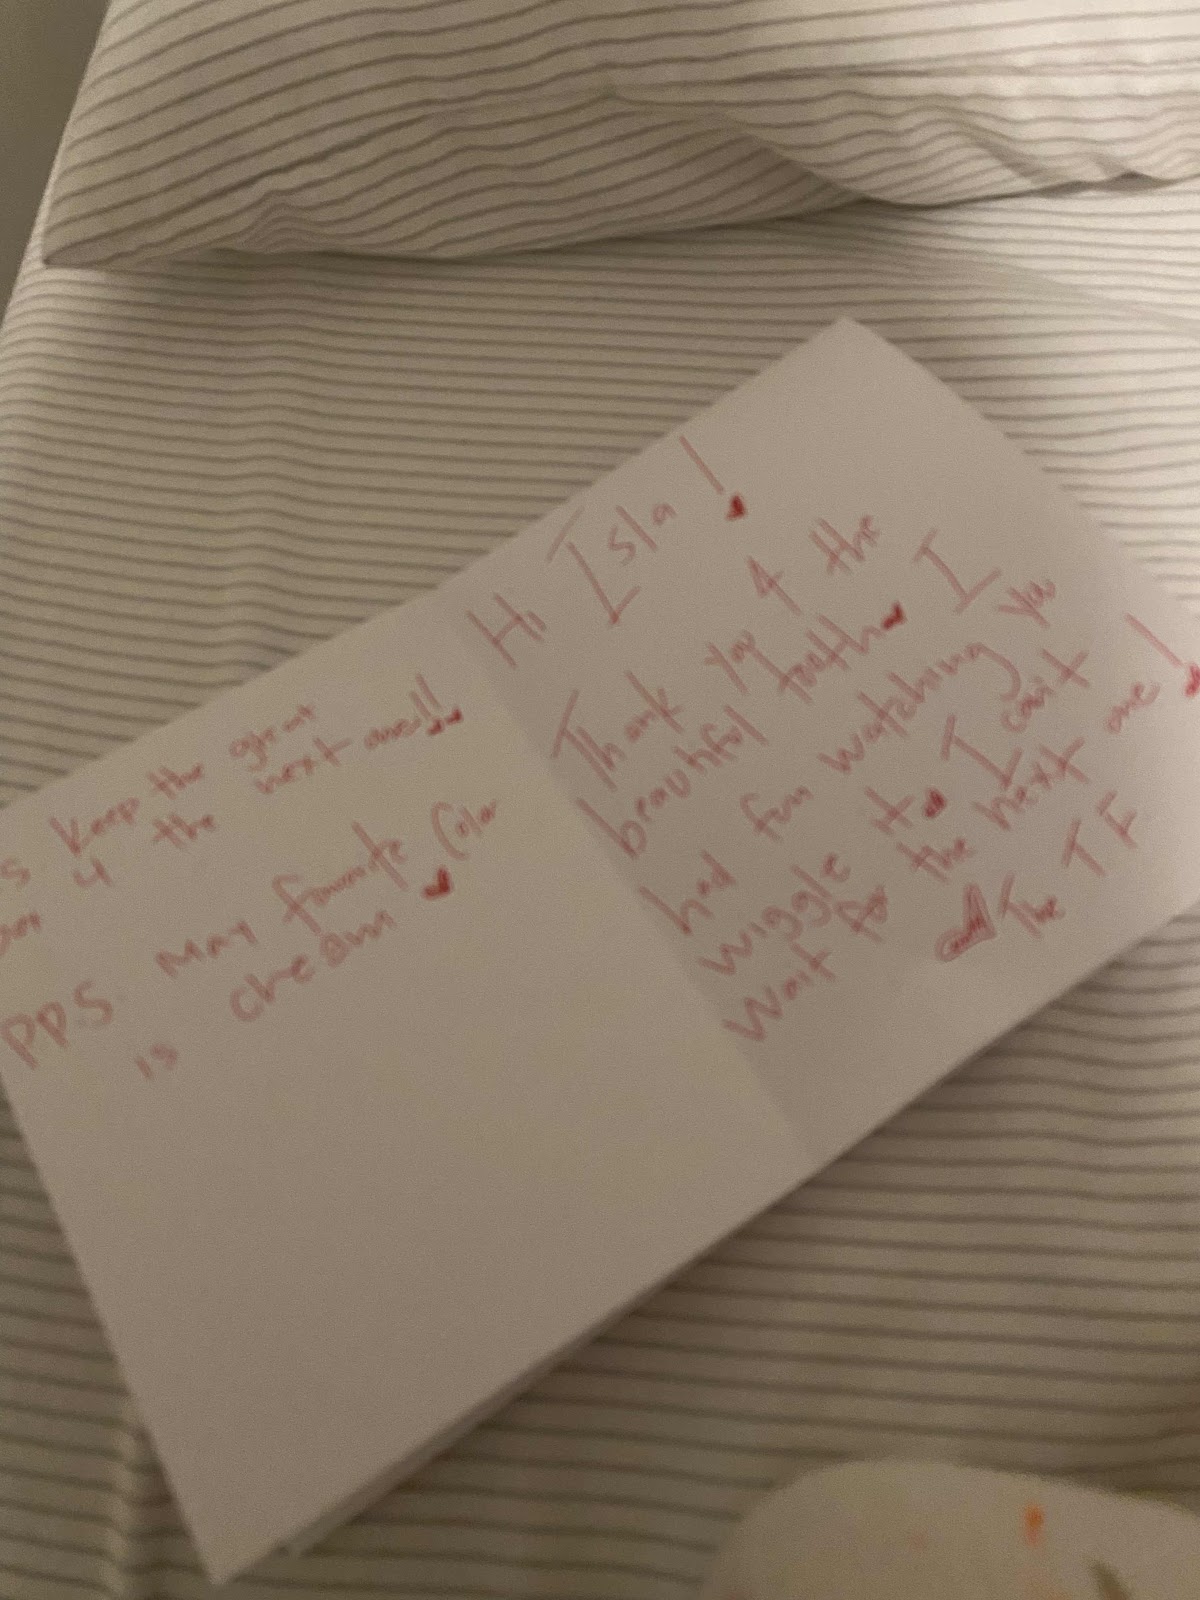 Hi Isla!
Thank you 4 the
beautiful tooth. I
had fun watching ya
wiggle it. I cait
wait for the next one!
The TF
S Keep the great
4 the next one!!
PPS May favorite Color
is cream